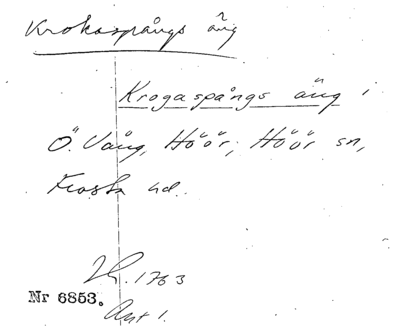 Krokaspångs äng
Krogaspångs äng i
Ö. Vång, Höör; Höör sn,
Frosta hd.
LK. 1763
Nr 6853.
Akt 1.